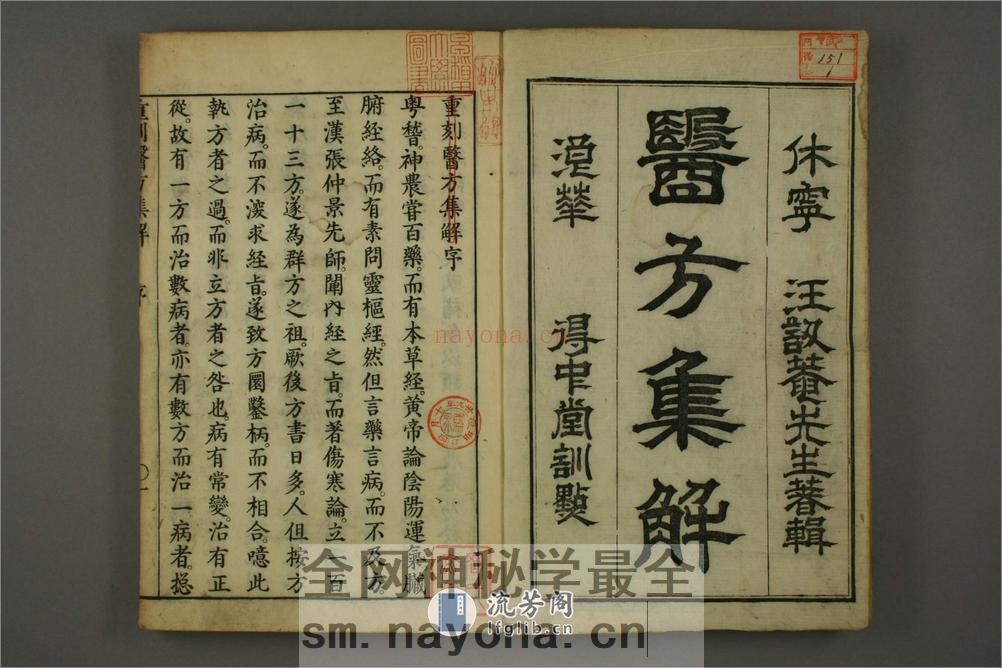 休寧 汪訒菴先生著輯
醫方集解
浪華 得中堂訓點
重刻醫方集解序
粤稽。神農嘗百藥。而有本草經。黃帝論陰陽運氣臟
腑經絡。而有素問靈樞經。然但言藥言病。而不及方。
至漢張仲景先師。闡內經之旨。而著傷寒論。立一百
一十三方。遂為群方之祖。厥後方書日多。人但按方
治病。而不深求經旨。遂致方圓鑿枘。而不相合。噫此
執方者之過。而非立方者之咎也。病有常變。治有正
從。故有一方而治數病者。亦有數方而治一病者。揔
重刻醫方集解 序 〇一
151
1
nayona.cn
全网神秘学最全
流芳阁
lfglib.cn
sm.nayona.cn